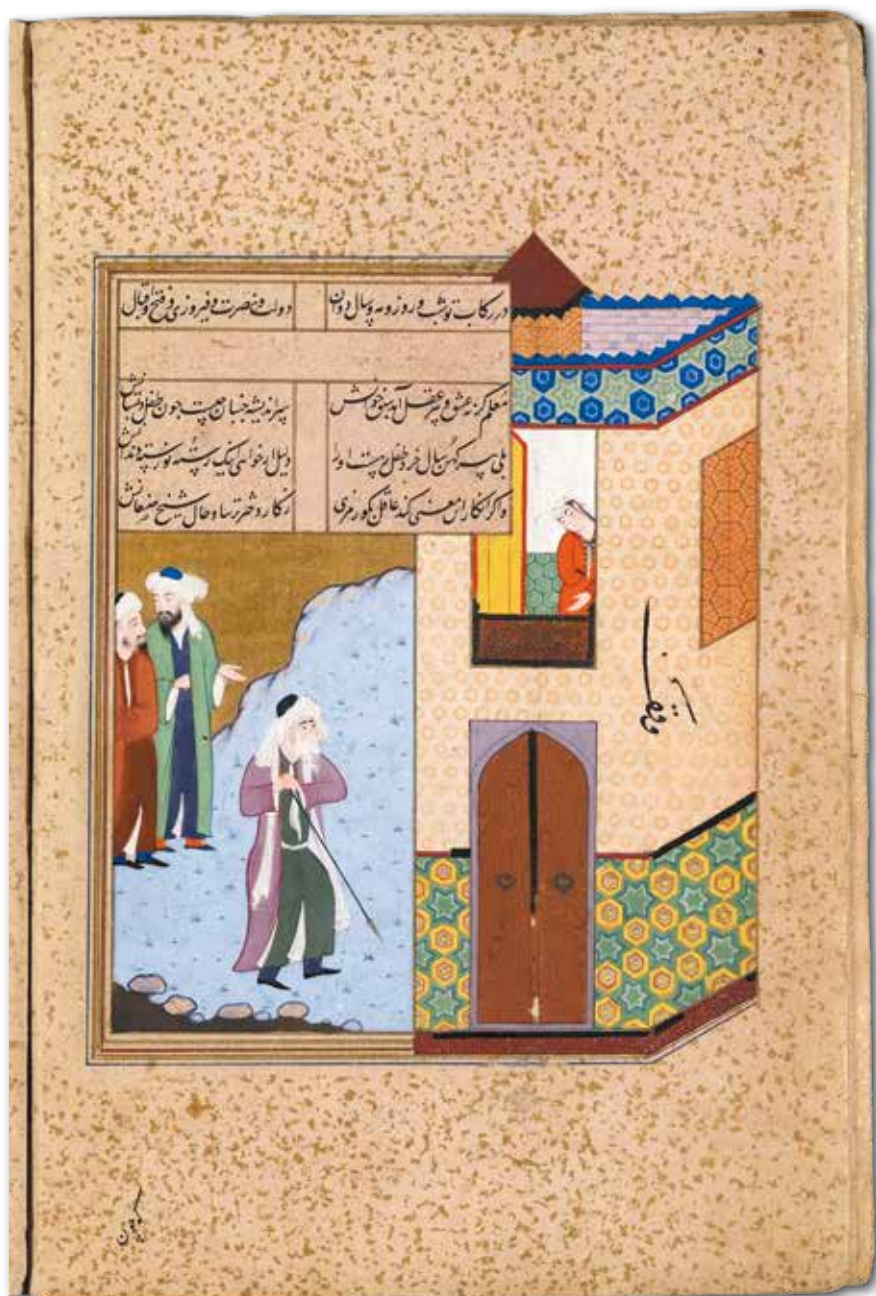 در رکابت تو شب و روز و مه و سال دوان دولت و نصرت و فیروزی و فتح و اقبال
معلم گرنه عشق و پیر عقل آمد سبق خوانش سر اندیشه جنبان چیست چون طفل دبستانش
بلی پیر کهن سال خرد طفلیست او را دلیل ار خواهی اینک رسته نو رسته دندانش
و اگر انکار این معنی کند عاقل بگو رمزی ز کار دختر ترسا و حال شیخ صنعانش
وقف
که چون